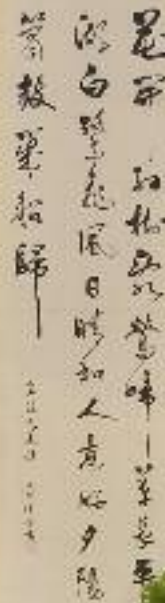 花開紅樹亂鶯啼草長平
湖白鷺飛風日晴和人意好夕陽
簫鼓幾船歸